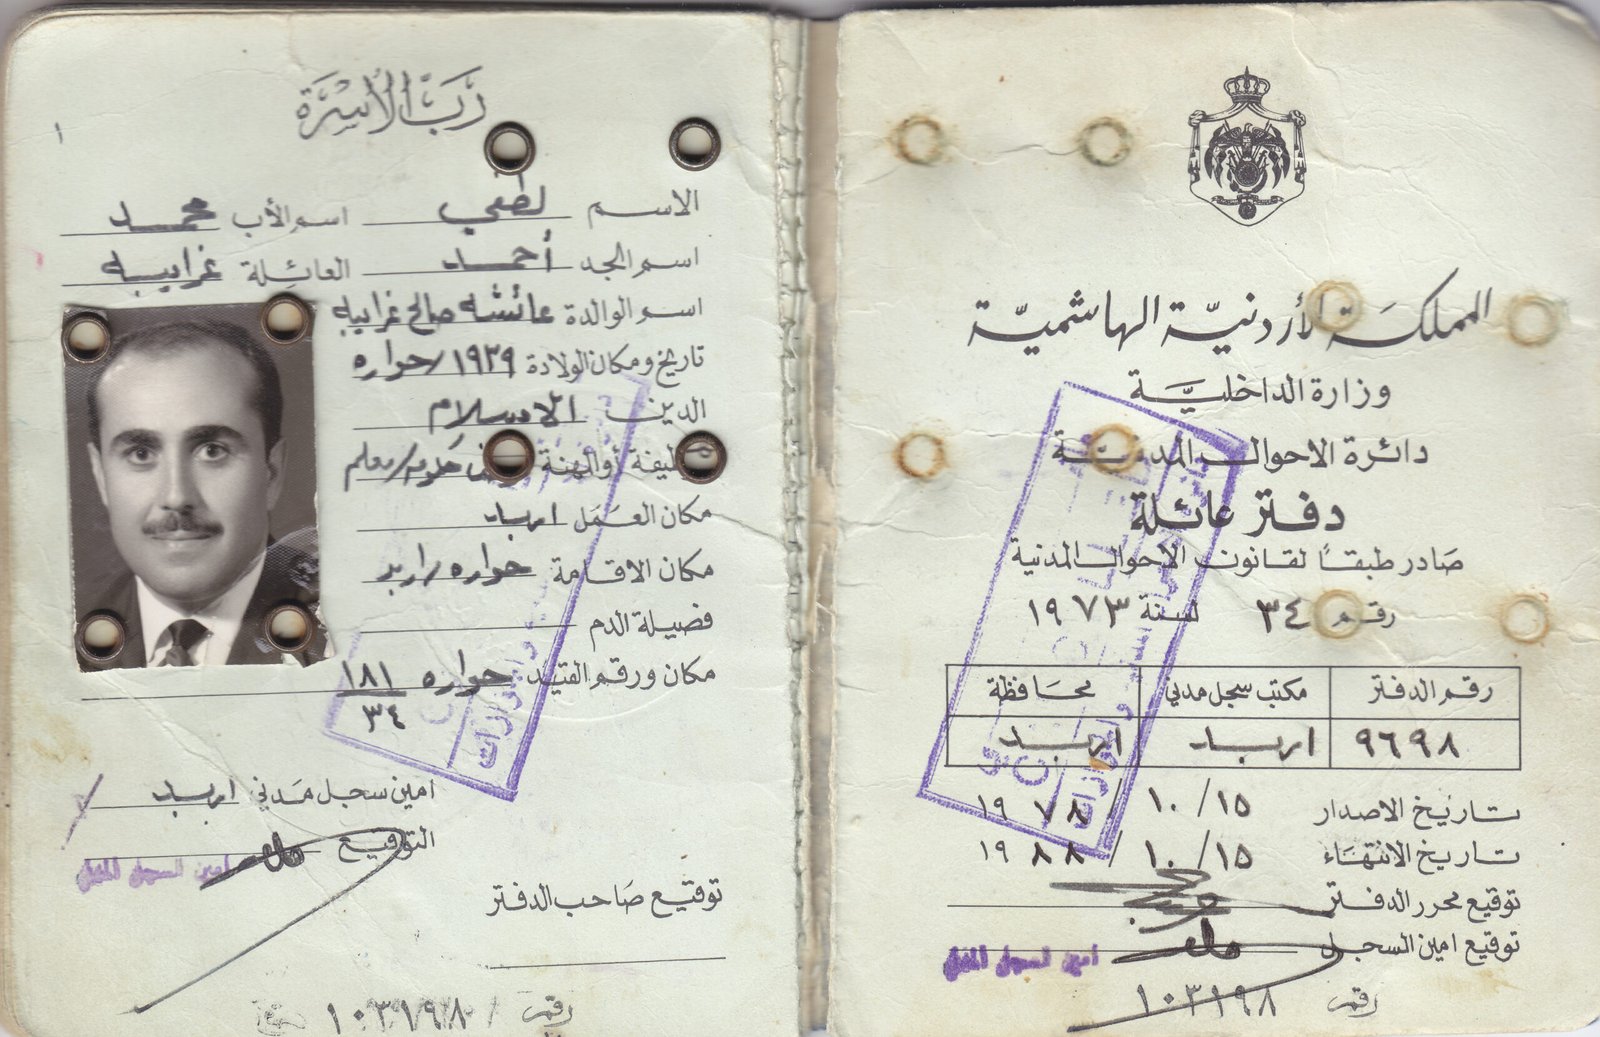 المملكة الأردنية الهاشمية
وزارة الداخلية
دائرة الاحوال المدنية
دفتر عائلة
صادر طبقاً لقانون الاحوال المدنية
رقم ٣٤ لسنة ١٩٧٣
رقم الدفتر مكتب سجل مدني محافظة
٩٦٩٨ اربد اربد
تاريخ الاصدار ١٥/١٠/١٩٧٨
تاريخ الانتهاء ١٥/١٠/١٩٨٨
توقيع محرر الدفتر
توقيع امين السجل
أمين السجل المدني
رقم ١٠٣١٩٨
رَبّ الأُسْرَة
١
الاسم لطفي اسم الأب محمد
اسم الجد أحمد العائلة غرايبه
اسم الوالدة عائشه صالح غرايبه
تاريخ ومكان الولادة ١٩٣٩/حواره
الدين الاسلام
أو المهنة معلم
مكان العمل اربد
مكان الاقامة حواره/اربد
فصيلة الدم
مكان ورقم القيد حواره ١٨١
٣٤
امين سجل مدني اربد
التوقيع
أمين السجل المدني
توقيع صاحب الدفتر
رقم ١٠٣١٩٨